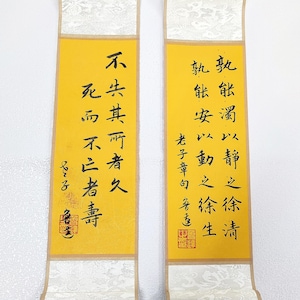 孰能濁以靜之徐清
孰能安以動之徐生
老子章句
不失其所者久
死而不亡者壽
老子